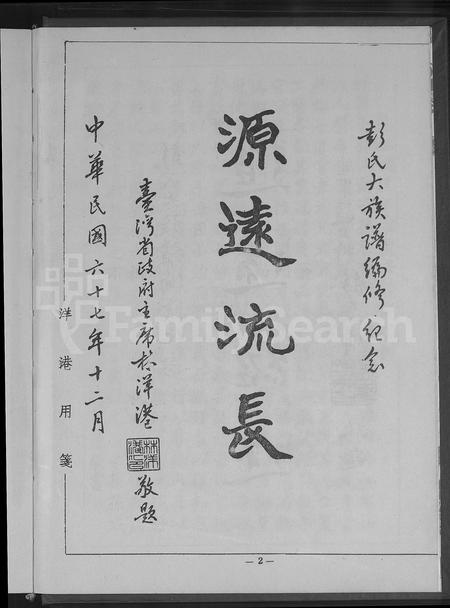 彭氏大族譜編修紀念
源遠流長
臺灣省政府主席林洋港敬題
林洋港印
中華民國六十七年十二月
洋港用箋
— 2 —
FamilySearch